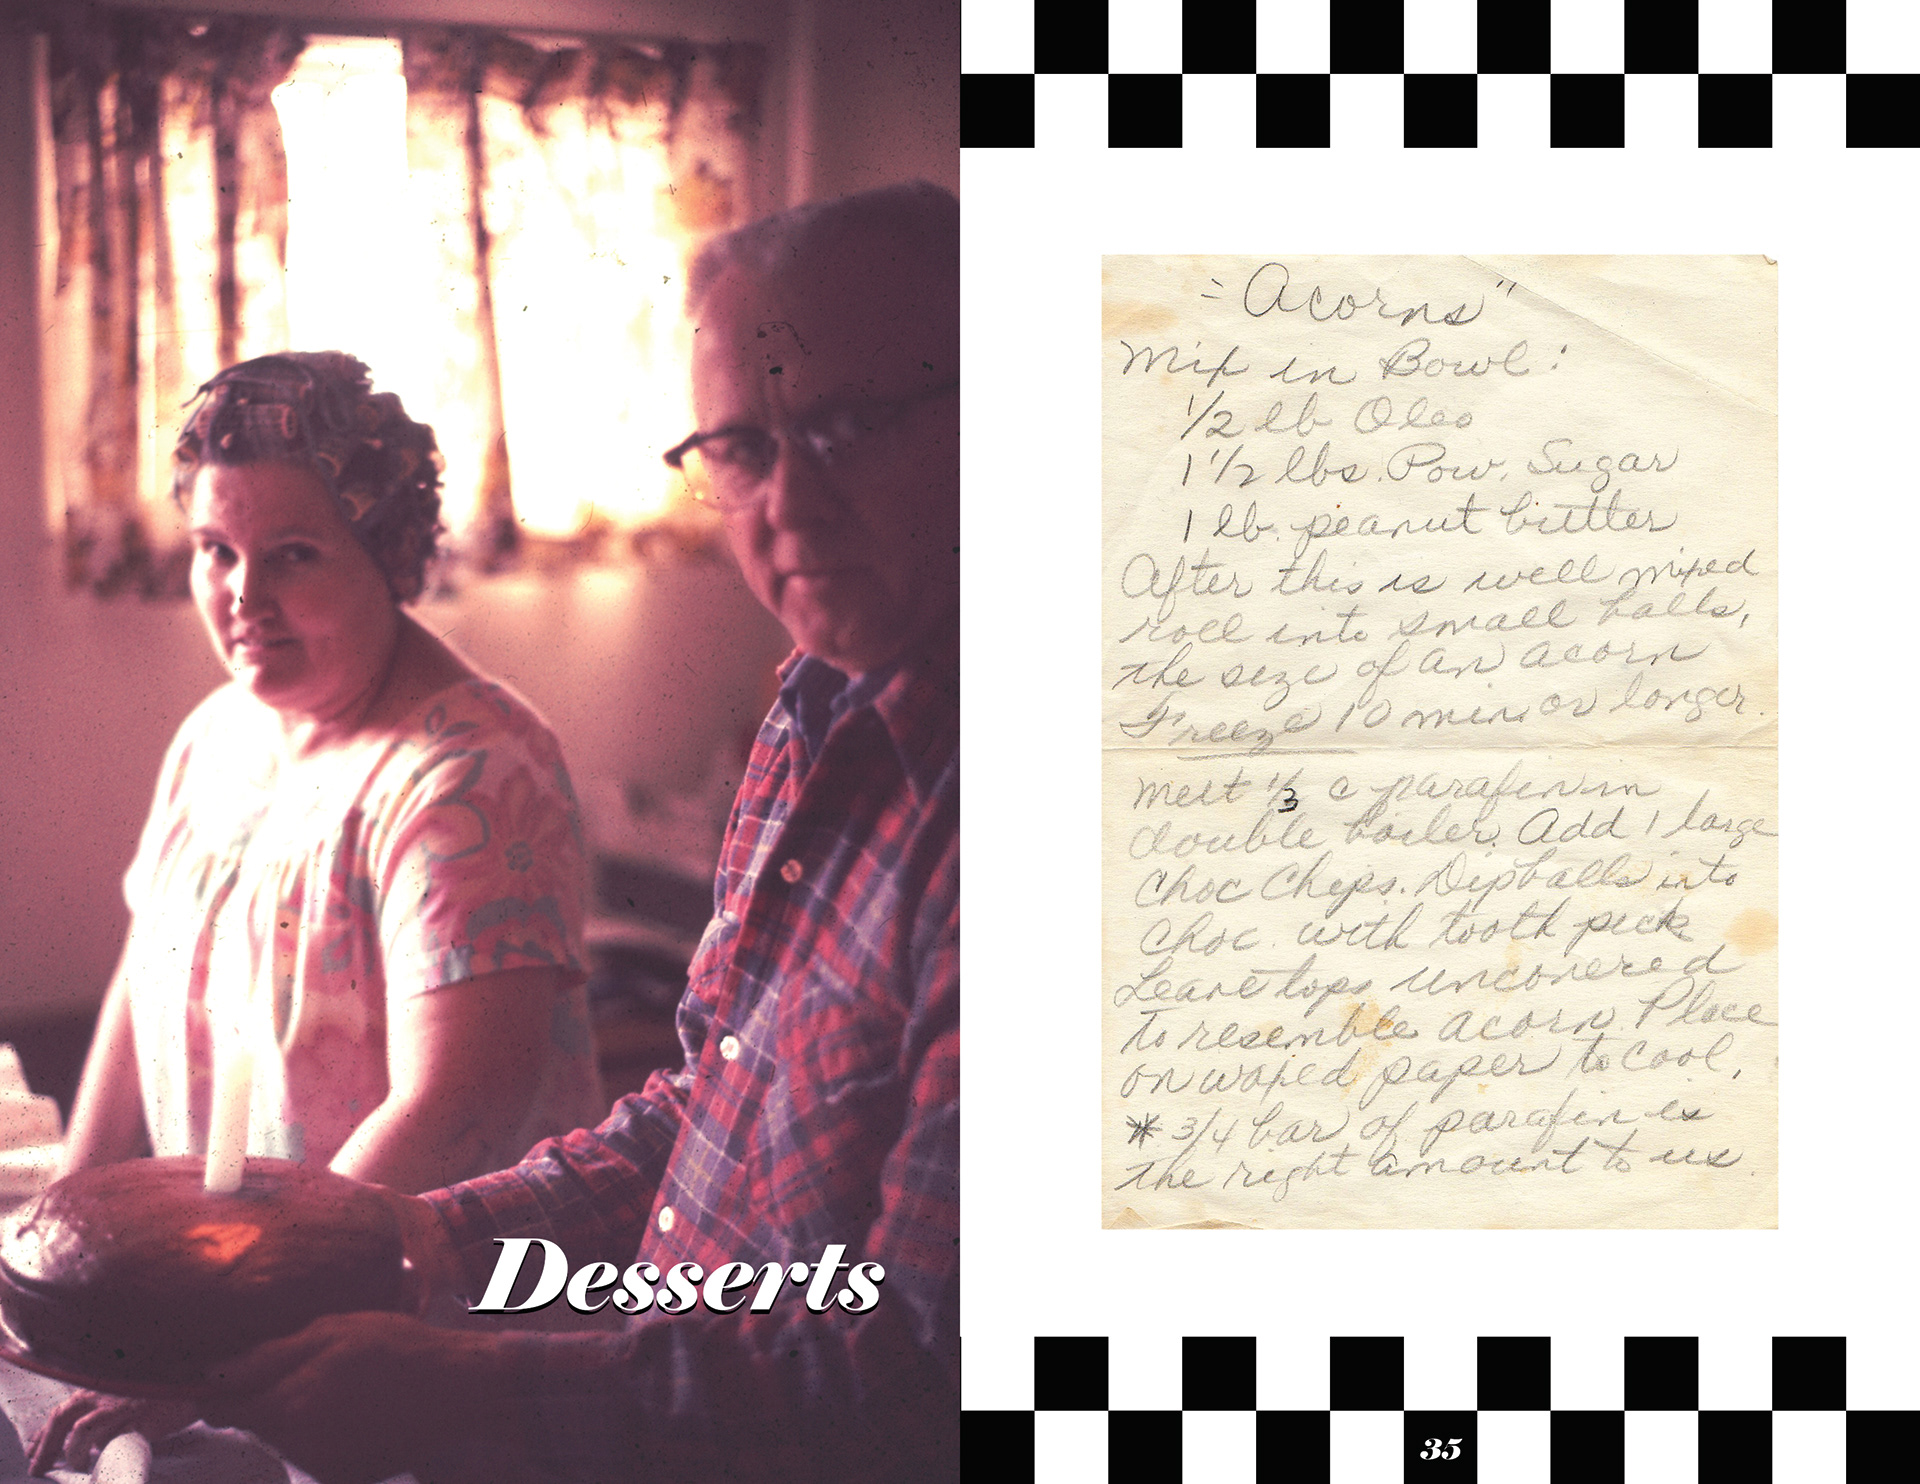 Desserts
"Acorns"
Mix in Bowl:
1/2 lb Oleo
1 1/2 lbs. Pow. Sugar
1 lb. peanut butter
After this is well mixed
roll into small balls,
the size of an acorn
Freeze 10 min. or longer.
Melt 1/3 c parafin in
double boiler. Add 1 large
Choc Chips. Dip balls into
Choc. with tooth pick
Leave tops uncovered
to resemble acorn. Place
on waxed paper to cool.
* 3/4 bar of parafin is
the right amount to us.
35